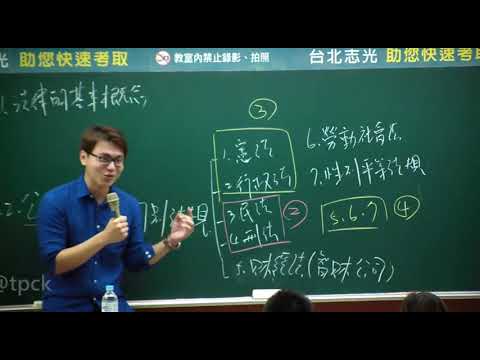 助您快速考取
教室內禁止錄影、拍照
台北志光 助您快速考取
1.法律的基本概念
③
1.憲法
2.行政法
3.民法
4.刑法
②
6.勞動社會法
7.性別平等法規
5.6.7 ④
5.財經法(智財公司)
2.公
別法規
@tpck